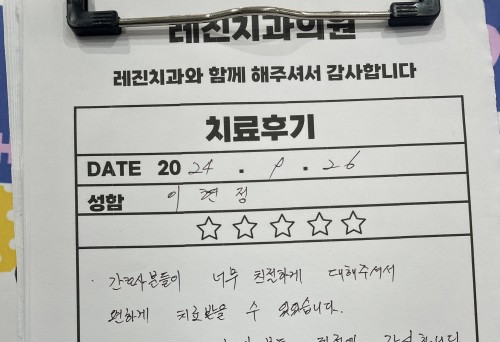 레진치과의원
레진치과와 함께 해주셔서 감사합니다
치료후기
DATE 2024 . 9 . 26
성함 이현정
· 간호사분들이 너무 친절하게 대해주셔서
편하게 치료받을 수 있었습니다.